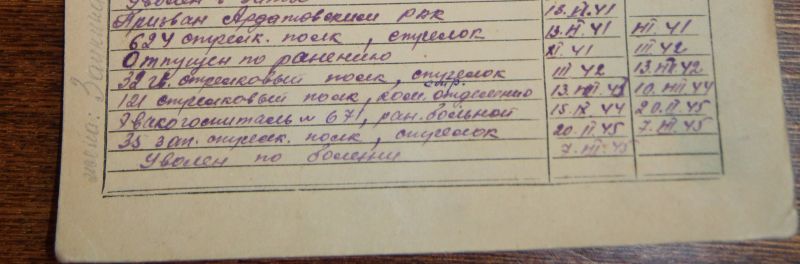 Уволен в запас
Призван Ардатовским рвк 13.VI.41
624 стрелк. полк, стрелок 13.VI.41 XII.41
Отпущен по ранению XI.41 III.42
32 гв. стрелковый полк, стрелок III.42 13.VIII.42
121 стрелковый полк, ком. стр. отделения 13.VIII.43 10.VIII.44
Эвакогоспиталь № 671, ран. больной 15.IX.44 20.II.45
35 зап. стрелк. полк, стрелок 20.II.45 7.VII.45
Уволен по болезни 7.VII.45